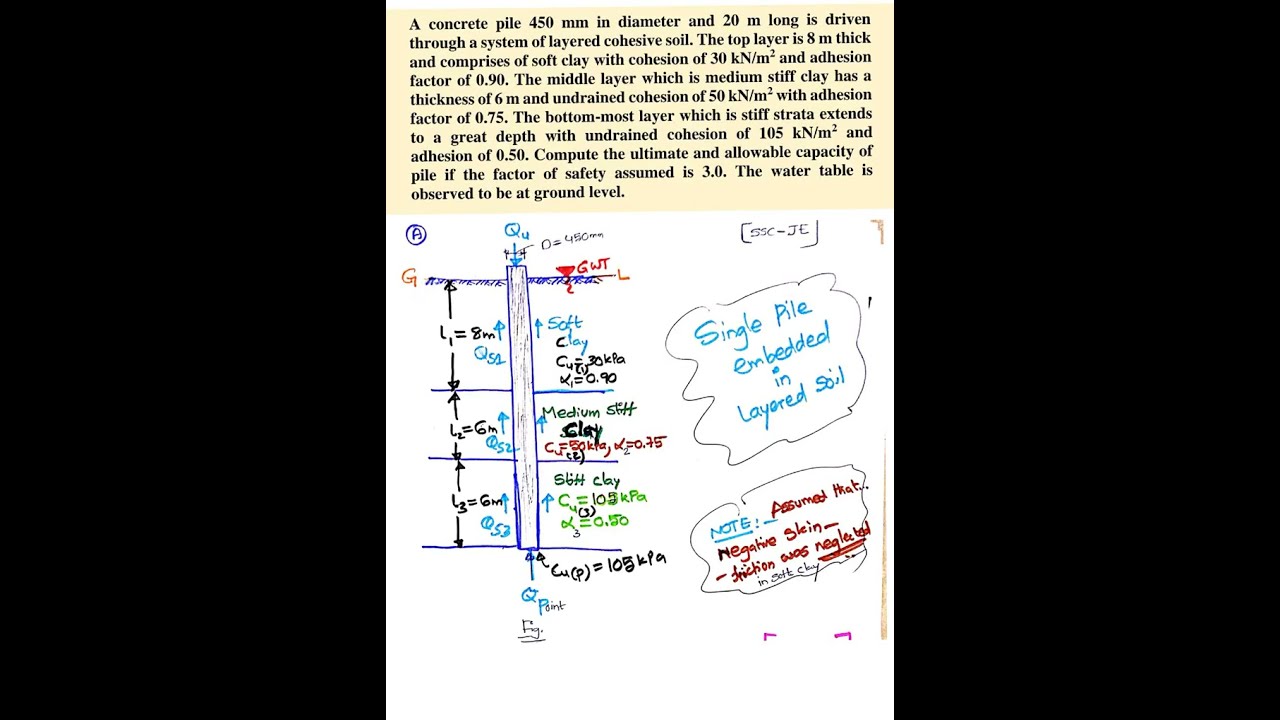 A concrete pile 450 mm in diameter and 20 m long is driven
through a system of layered cohesive soil. The top layer is 8 m thick
and comprises of soft clay with cohesion of 30 kN/m² and adhesion
factor of 0.90. The middle layer which is medium stiff clay has a
thickness of 6 m and undrained cohesion of 50 kN/m² with adhesion
factor of 0.75. The bottom-most layer which is stiff strata extends
to a great depth with undrained cohesion of 105 kN/m² and
adhesion of 0.50. Compute the ultimate and allowable capacity of
pile if the factor of safety assumed is 3.0. The water table is
observed to be at ground level.
A
Qu
D=450mm
[SSC-JE]
G
GWT
L
l₁=8m
Qs1
Soft
Clay
Cu(1)=30kPa
α₁=0.90
Single Pile
embedded
in
Layered Soil
l₂=6m
Qs2
Medium stiff
Clay
Cu(2)=50kPa, α₂=0.75
l₃=6m
Qs3
Stiff clay
Cu(3)=105kPa
α₃=0.50
Cu(P)=105kPa
Q Point
Fig.
NOTE:- Assumed that...
Negative skin-
-friction was neglected
in soft clay